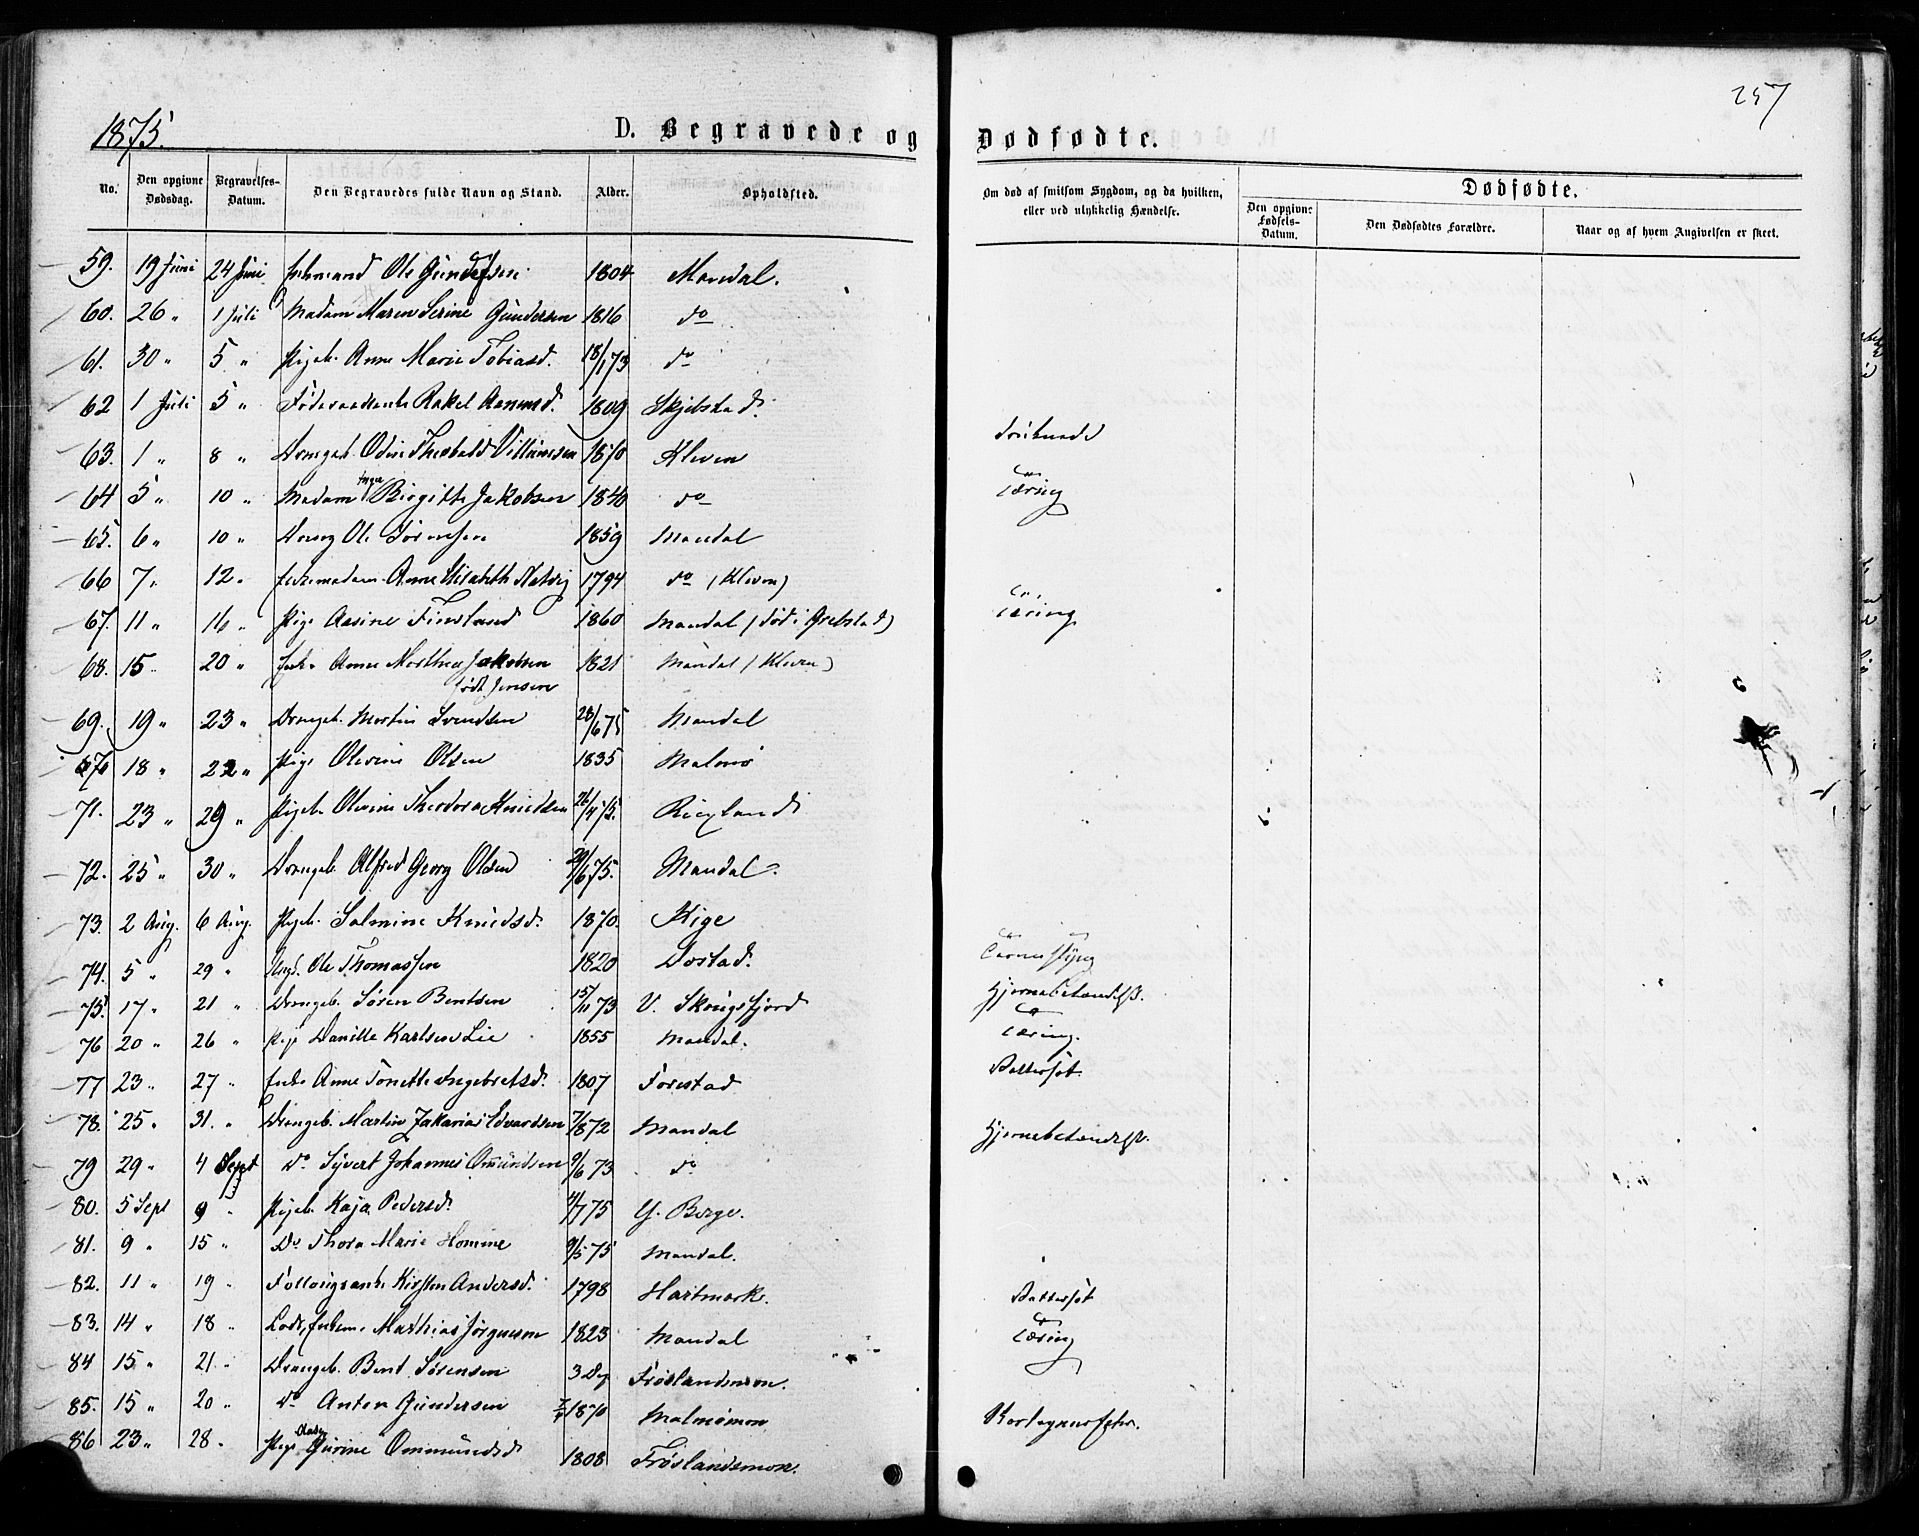 257
1875.
D. Begravede og Dødfødte.
No. Den opgivne Dødsdag. Begravelses-Datum. Den Begravedes fulde Navn og Stand. Alder. Opholdsted. Om død af smitsom Sygdom, og da hvilken, eller ved ulykkelig Hændelse. Dødfødte.
Den opgivne Fødsels-Datum. Den Dødfødtes Forældre. Naar og af hvem Angivelsen er skeet.
59. 19 Juni 24 Juni Enkemand Ole Gundersen 1804 Mandal.
60. 26 " 1 Juli Madam Maren Serine Gundersen 1816 do
61. 30 " 5 " Pigeb. Anne Marie Tobiasd. 18/1 73 do
62 1 Juli 5 " Føderaadsenke Rakel Aanensd. 1809 Skjebstad.
63. 1 " 8 " Drengeb. Odin Theobald Villumsen 1870 Kleven Druknede
64 5 " 10 " Madam Inger Birgitte Jakobsen 1840 do Tæring
65. 6 " 10 " Dreng Ole Sørensen 1859 Mandal
66 7 " 12 " Enkemadam Anne Elisabeth Natvig 1794 do (Kleven)
67. 11 " 16 " Pige Aasine Finsland 1860 Mandal (død i Grebstad) Tæring
68. 15 " 20 " Enke Anne Marthea Jakobsen 1821 Mandal (Kleven)
født Jensen
69. 19 " 23 " Drengeb. Martin Svendsen 28/6 75 Mandal
70 18 " 22 " Pige Olevine Olsen 1835 Malmø
71. 23 " 29 " Pigeb. Olevine Theodora Knudsen 26/4 75. Risland
72. 25 " 30 " Drengeb. Alfred Georg Olsen 29/6 75. Mandal.
73. 2 Aug. 6 Aug. Pigeb. Salmine Knudsd. 1870. Kige
74. 5 " 29 " Ungk. Ole Thomassen 1820 Dostad.
75. 17 " 21 " Drengeb. Søren Bentsen 15/11 73 V. Skougsfjord Hjernebetændelse.
76 20 " 26 " Pige Danille Karlsen Lie 1855 Mandal. Tæring.
77 23 " 27 " Enke Anne Tonette Ingebretsd. 1807 Forestad Vattersot
78. 25 " 31. " Drengeb. Martin Zakarias Edvardsen 7/8 72 Mandal Hjernebetændelse.
79 29 " 4 Sept Do Syvert Johannes Omundsen 9/6 73 do
80. 5 Sept 9 " Pigeb. Kaja Pedersd. 4/7 75 Y. Berge.
81. 9 " 15 " Do Thora Marie Homme 9/5 75 Mandal.
82. 11 " 19 " Kirsten Andersd. 1798 Hartmark. Vattersot
83. 14 " 18 " Lods, Enkem. Mathias Jørgensen 1823 Mandal Tæring
84 15 " 21 " Drengeb. Bent Sørensen 3 Dg Frøslandsmon.
85. 15 " 20 " Do Anton Gundersen 1870 Malmømon
86 23 " 28 " Pige Gurine Ommundsd 1808 Frøslandsmon.